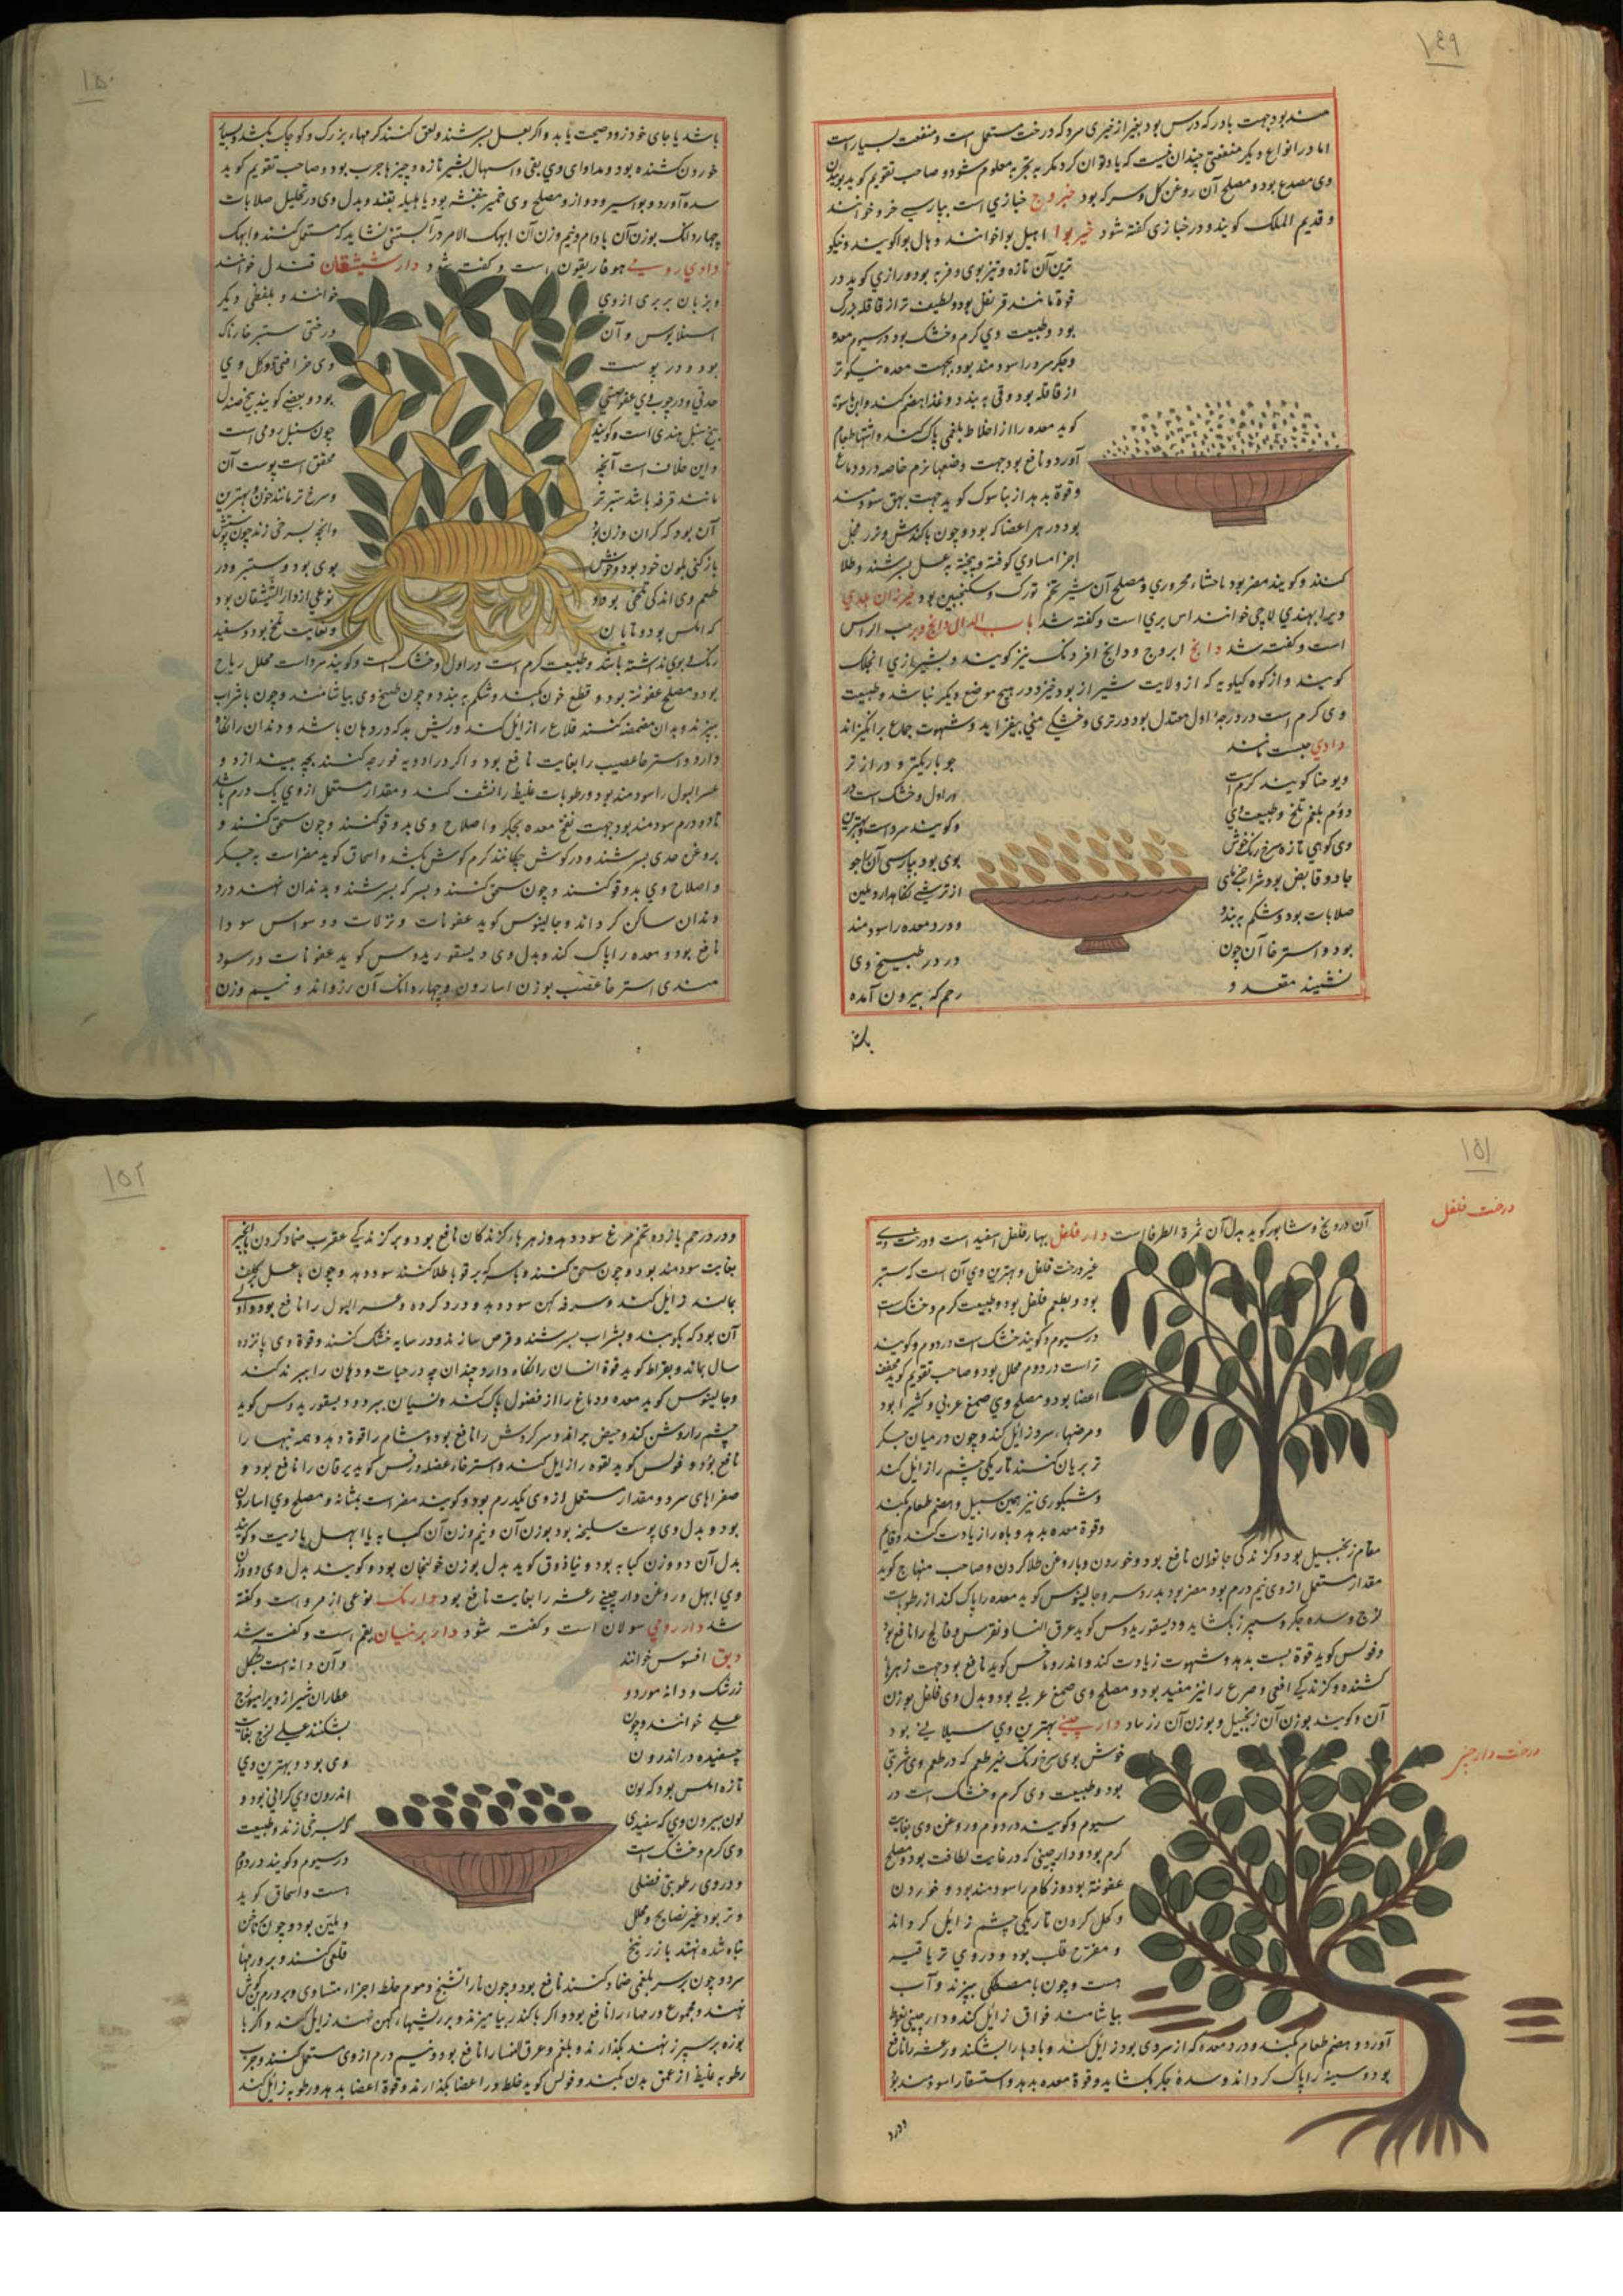 ۱۴۹
مند بود جهت بادر که درس بود بغیر از خیری سرد که درخت مستعمل است و منفعت بسیار است
اما در انواع دیکر منفعتی چندان نیست که یاد توان کرد مکر به تجربه معلوم شود و صاحب تقویم کوید بوئیدن
وی مصدع بود و مصلح آن روغن کل و سرکه بود خبروج خبازی است بپارسی خرو خوانند
و قدیم الملک کویند و در خبازی کفته شود خیربوا هیل بوا خوانند و هال بوا کویند و نیکو
ترین آن تازه و تیزبوی و فربه بود و رازی کوید در
قوة مانند قرنفل بود و لطیف تر از قاقله بزرک
بود و طبیعت وی کرم و خشک بود در سیوم معده
و جکر سرد را سودمند بود بجهت معده نیکوتر
از قاقله بود و قی ببندد و غذا هضم کند و ابن ماسویه
کوید معده را از اخلاط بلغمی پاک کند و اشتها طعام
آورد و نافع بود جهت وضعها نرم خاصه درد دماغ
و قوة بدهد از بناسوک کوید جهت بهق سودمند
بود در هر اعضا که بود و چون باکندش و ترد مخل
اجزا مساوی کوفته و بیخته به عسل بسرشند و طلا
کنند و کویند مضر بود باحشاء محروری و مصلح آن شیر تخم تورک و سکنجبین بود خیزران بلدی
و ویرا بهندی لاجی خوانند اس بری است و کفته شد باب الدال دابخ
است و کفته شد دابخ ابروج و دابخ افرنک نیز کویند و بشیرازی انجلک
کویند و از کوه کیلویه که از ولایت شیراز بود خیزد و در هیچ موضع دیکر نباشد و طبیعت
وی کرم است در درجهٔ اول معتدل بود در تری و خشکی منی بیفزاید و شهوت جماع برانکیزاند
دادی حبیست مانند جو باریکتر و درازتر
و بو حنا کویند کرم است در اول و خشک است در
دوم بلغم تلخ و طبیعت وی و کویند سرد است و بهترین
وی کوهی تازه سرخ رنک خوش بوی بود بپارسی آن با جو
جادو قابض بود شراب خرمای از ترشی نکاهدارد و ملین
صلابات بود و شکم ببندد و درد معده را سودمند
بود و استرخا آن چون در طبیخ وی
نشیند مقعد و رحم که بیرون آمده
۱۵۰
باشد با جای خود زود صحت یابد و اکر بعسل بسرشند و لعق کنند کرمهاء بزرک و کوچک بکشد و بسیار
خوردن کشنده بود و مداوای وی بقی و اسهال بشیر تازه و چیزها چرب بود و صاحب تقویم کوید
سده آورد و بواسیر و دوار و مصلح وی خمیر بنفشه بود یا هلیله بقند و بدل وی در تحلیل صلابات
چهار دانک بوزن آن بادام و نیم وزن آن ابهک الامر درآبستنی نشاید که مستعمل کنند و ابهک
دادی رومی هوفاریقون است و کفته شود دار شیشعان قندل خوانند
و بزبان بربری ازوی خوانند و بلفظی دیکر
اسلابوس و آن درختی ستبر خارناک
بود و در پوست وی خراضی و کل وی
حدتی و در چوب وی عفوصتی بود و بعضی کویند بیخ صندل
بیخ سنبل هندی است و کویند چون سنبل رومی است
و این خلاف است آنچه محقق است پوست آن
مانند قرفه باشد ستبرتر و سرخ تر مانند خون و بهترین
آن بود که کران وزن بود و آنچه بسرخی زند چون پوستش
باز کنی بلون خود بود و خوش بوی بود و ستبر و در
طعم وی اندکی تلخی بود و نوعی از دار الشیشعان بود
که املس بود و نمایان و بغایت تلخ بود و سفید
رنک و بوی نداشته باشد و طبیعت کرم است در اول و خشک است و کویند سرد است محلل ریاح
بود و مصلح عفونة بود و قطع خون کند و شکم ببندد و چون طبیخ وی بیاشامند و چون با شراب
بپزند و بدان مضمضه کنند قلاع را زایل کند و ریش بد که در دهان باشد و دندان را نکاه
دارد و استرخا عصب را بغایت نافع بود و اکر در ادویه فرزجه کنند بچه بیندازد و
عسر البول را سودمند بود و رطوبات غلیظ را نشف کند و مقدار مستعمل ازوی یک درم باشد
تا دو درم سودمند بود جهت نفخ معده و جکر و اصلاح وی بدوقو کنند و چون سحق کنند و
بروغن جدی بسرشند و در کوش چکانند کرم کوش بکشد و اسحاق کوید مضر است به جکر
و اصلاح وی بدوقو کنند و چون سحق کنند و بسرکه بسرشند و بدندان نهند درد
دندان ساکن کرداند و جالینوس کوید عفونات و نزلات و وسواس سودا
نافع بود و معده را پاک کند و بدل وی دیسقوریدوس کوید عفونات درسود
مندی استرخا عصب بوزن اسارون و چهار دانک آن رزواند و نیم وزن
۱۵۱
درخت فلفل
آن درونج و شاپور کوید بدل آن ثمرة الطرفا است دار فلفل بهار فلفل سفید است و درخت وی
غیر درخت فلفل و بهترین وی آن است که ستبر
بود و بطعم فلفل بود و طبیعت کرم و خشک است
در سیوم و کویند خشک است در دوم و کویند
تراست در دوم محلل بود و صاحب تقویم کوید مجفف
اعضا بود و مصلح وی صمغ عربی و کثیرا بود
و مرضهاء سرد زایل کند و چون در میان جکر
تر بریان کنند تاریکی چشم را زایل کند
و شبکوری نیز همین سبیل و هضم طعام بکند
و قوة معده بدهد و باه را زیادت کند و قایم
مقام زنجبیل بود و کزندکی جانوران نافع بود و خوردن و با روغن طلا کردن و صاحب منهاج کوید
مقدار مستعمل ازوی نیم درم بود مضر بود بدرد سر و جالینوس کوید معده را پاک کند از رطوبت
لزج و سده جکر و سپرز بکشاید و دیسقوریدوس کوید عرق النسا و نقرس و فالج را نافع بود
و فولس کوید قوة پست بدهد و شهوت زیادت کند و اندروماخس کوید نافع بود جهت زهرها
کشنده و کزندکی افعی و صرع را نیز مفید بود و مصلح وی صمغ عربی بود و بدل وی فلفل بوزن
آن و کویند بوزن آن زنجبیل و بوزن آن زرنباد دار چینی بهترین وی سیلانی بود
درخت دارچینی
خوش بوی سرخ رنک تیز طعم که در طعم وی شیرینی
بود و طبیعت وی کرم و خشک است در
سیوم و کویند در دوم و روغن وی بغایت
کرم بود و دارچینی که در غایت لطافت بود و مصلح
عفونة بود و زکام را سودمند بود و خوردن
و کحل کردن تاریکی چشم زایل کرداند
و مفرح قلب بود و در وی تریاقیه
هست و چون با مصطکی بپزند و آب
بیاشامند فواق زایل کند و دارچینی نعوظ
آورد و هضم طعام بکند و درد معده که از سردی بود زایل کند و بادها را بشکند و رعشه را نافع
بود و سینه را پاک کرداند و سدهٔ جکر بکشاید و قوة معده بدهد و استسقا را سودمند بود
و درد
۱۵۲
و درد رحم با زرده تخم مرغ سود دهد و زهرهاء کزندکان نافع بود و بر کزندکی عقرب ضماد کردن با انجیر
بغایت سودمند بود و چون سحق کنند و با سرکه بر قوبا طلا کنند سود دهد و چون با عسل بکلف
بمالند زایل کند و سرفه کهن سود دهد و درد کرده و عسر البول را نافع بود و دوای
آن بود که بکوبند و بشراب بسرشند و قرص سازند و در سایه خشک کنند و قوة وی پانزده
سال بماند و بقراط کوید قوة انسان را نکاه دارد چندان چه در حیات و دهان را ببرند کند
و جالینوس کوید معده و دماغ را از فضول پاک کند و نسیان ببرد و دیسقوریدوس کوید
چشم را روشن کند و حیض براند و سرکردش را نافع بود و مشام را قوة دهد و همه تبها را
نافع بود و فولس کوید لقوه را زایل کند و استرخاء عضله و روفس کوید یرقان را نافع بود و
صفراهای سرد و مقدار مستعمل ازوی یکدرم بود و کویند مضر است بمثانه و مصلح وی اسارون
بود و بدل وی پوست سلیخه بود بوزن آن و نیم وزن آن کبابه یا ابهل یا زیت و کویند
بدل آن دو وزن کبابه بود و نیاذوق کوید بدل بوزن خولنجان بود و کویند بدل وی دو وزن
وی ابهل و روغن دارچینی رعشه را بغایت نافع بود دارمک نوعی از مرو است و کفته
شد دار رومی سولان است و کفته شود دار برنیان بقم است و کفته شد
دبق افسوس خوانند و آن دانه است بشکل
زرشک و دانه مورد و عطاران شیراز ویرا میونج
علی خوانند و چون بشکنند عسلی لزج بغایت
چسفیده در اندرون وی بود و بهترین وی
تازه املس بود که لون اندرون وی کراثی بود و
لون بیرون وی که سفیدی که بسرخی زند و طبیعت
وی کرم و خشک است در سیوم و کویند در دوم
و در وی رطوبتی فضلی هست و اسحاق کوید
و تر بود غیر نضایج و محلل و ملین بود و چون بر ناخن
تباه شده نهند با زرنیخ قلع کنند و بر ورمها
سرد و چون بر سر بلغمی ضماد کنند نافع بود و چون با راتینج و موم خلط اجزاء متساوی و بر ورم کوش
نهند و مجموع ورمهاء را نافع بود و اکر با کندر بیامیزند و بر ریشهاء کهن نهند زایل کند و اکر با
بوزه بر سپرز نهند بکذارند و بلغم و عرق النسا را نافع بود و نیم درم ازوی مستعمل کنند و جرب
رطوبه غلیظ از عمق بدن بکند و فولس کوید خلط و را اعضا بکذارند و قوة اعضا بدهد و رطوبه زایل کند